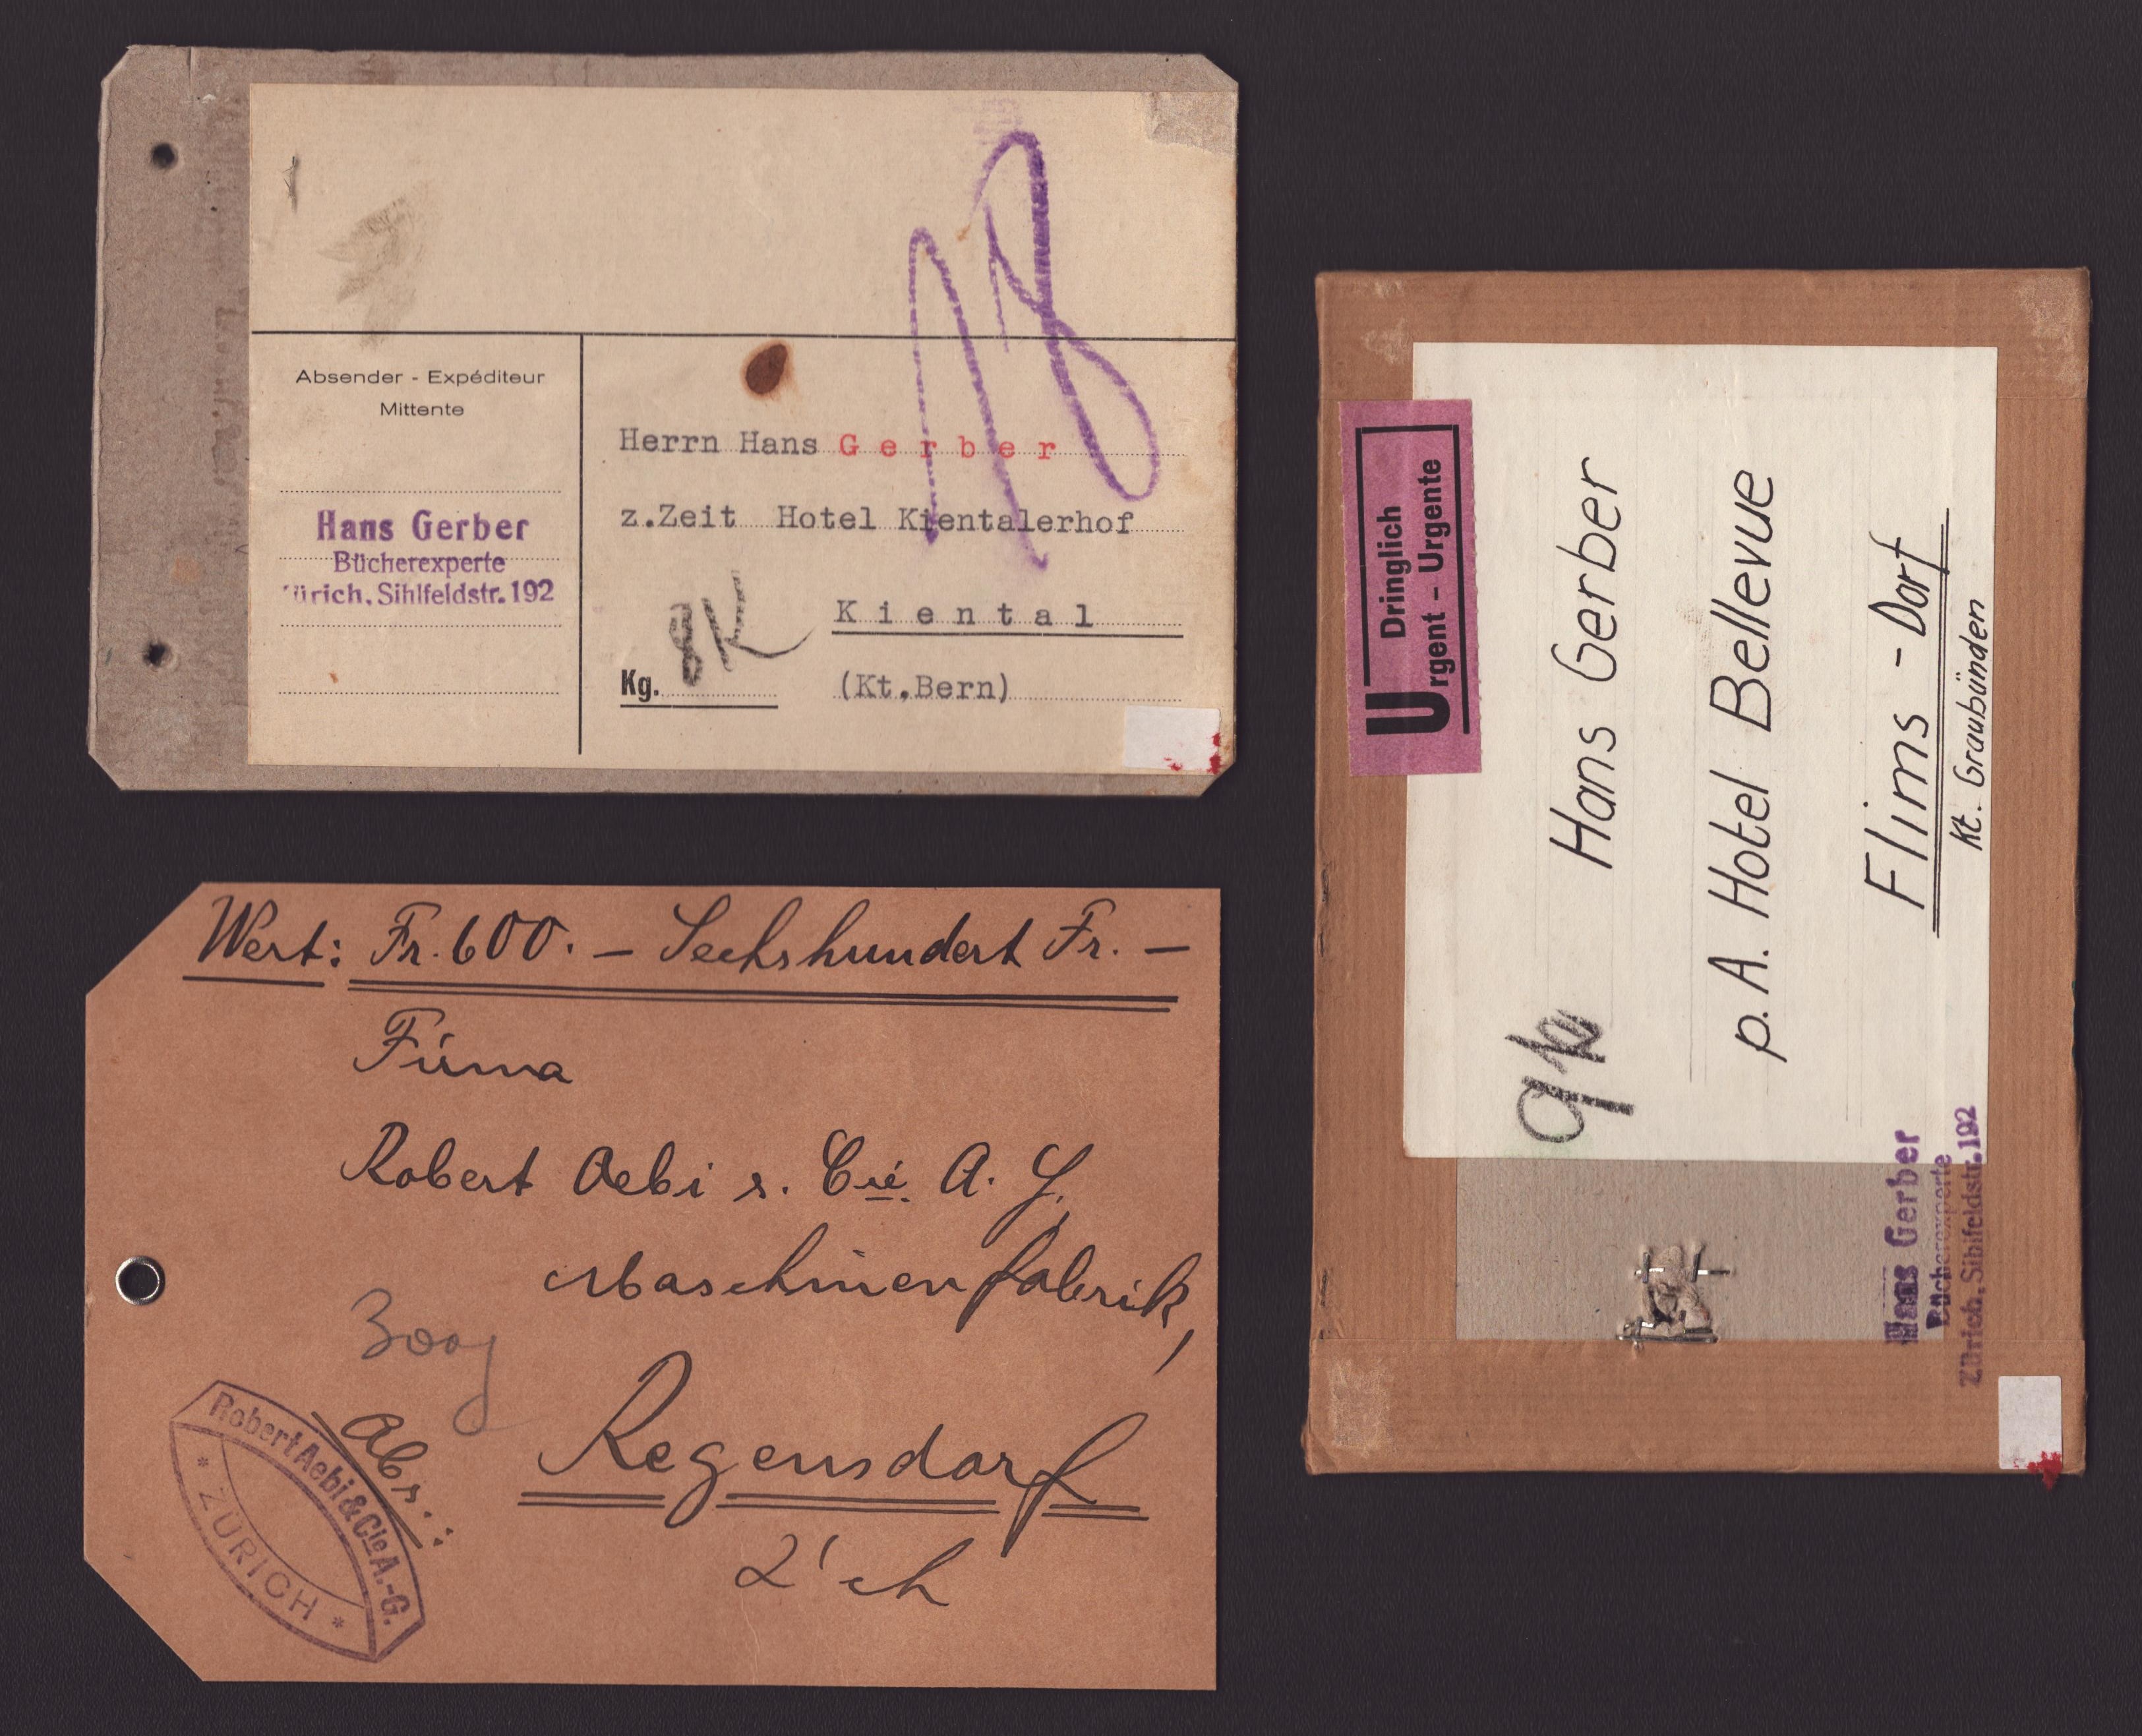 Absender - Expéditeur
Mittente
Hans Gerber
Bücherexperte
ürich, Sihlfeldstr. 192
18
Herrn Hans Gerber
z.Zeit Hotel Kientalerhof
Kiental
Kg. 8K
(Kt.Bern)
Wert: Fr. 600. – Sechshundert Fr. –
Firma
Robert Aebi &. Cie. A. G.
Maschinenfabrik,
300g
Regensdorf
Abs.:
Robert Aebi & Cie A.-G.
* ZÜRICH *
Dringlich
Urgent - Urgente
Hans Gerber
p. A. Hotel Bellevue
Flims - Dorf
Kt. Graubünden
Hans Gerber
Bücherexperte
Zürich, Sihlfeldstr. 192